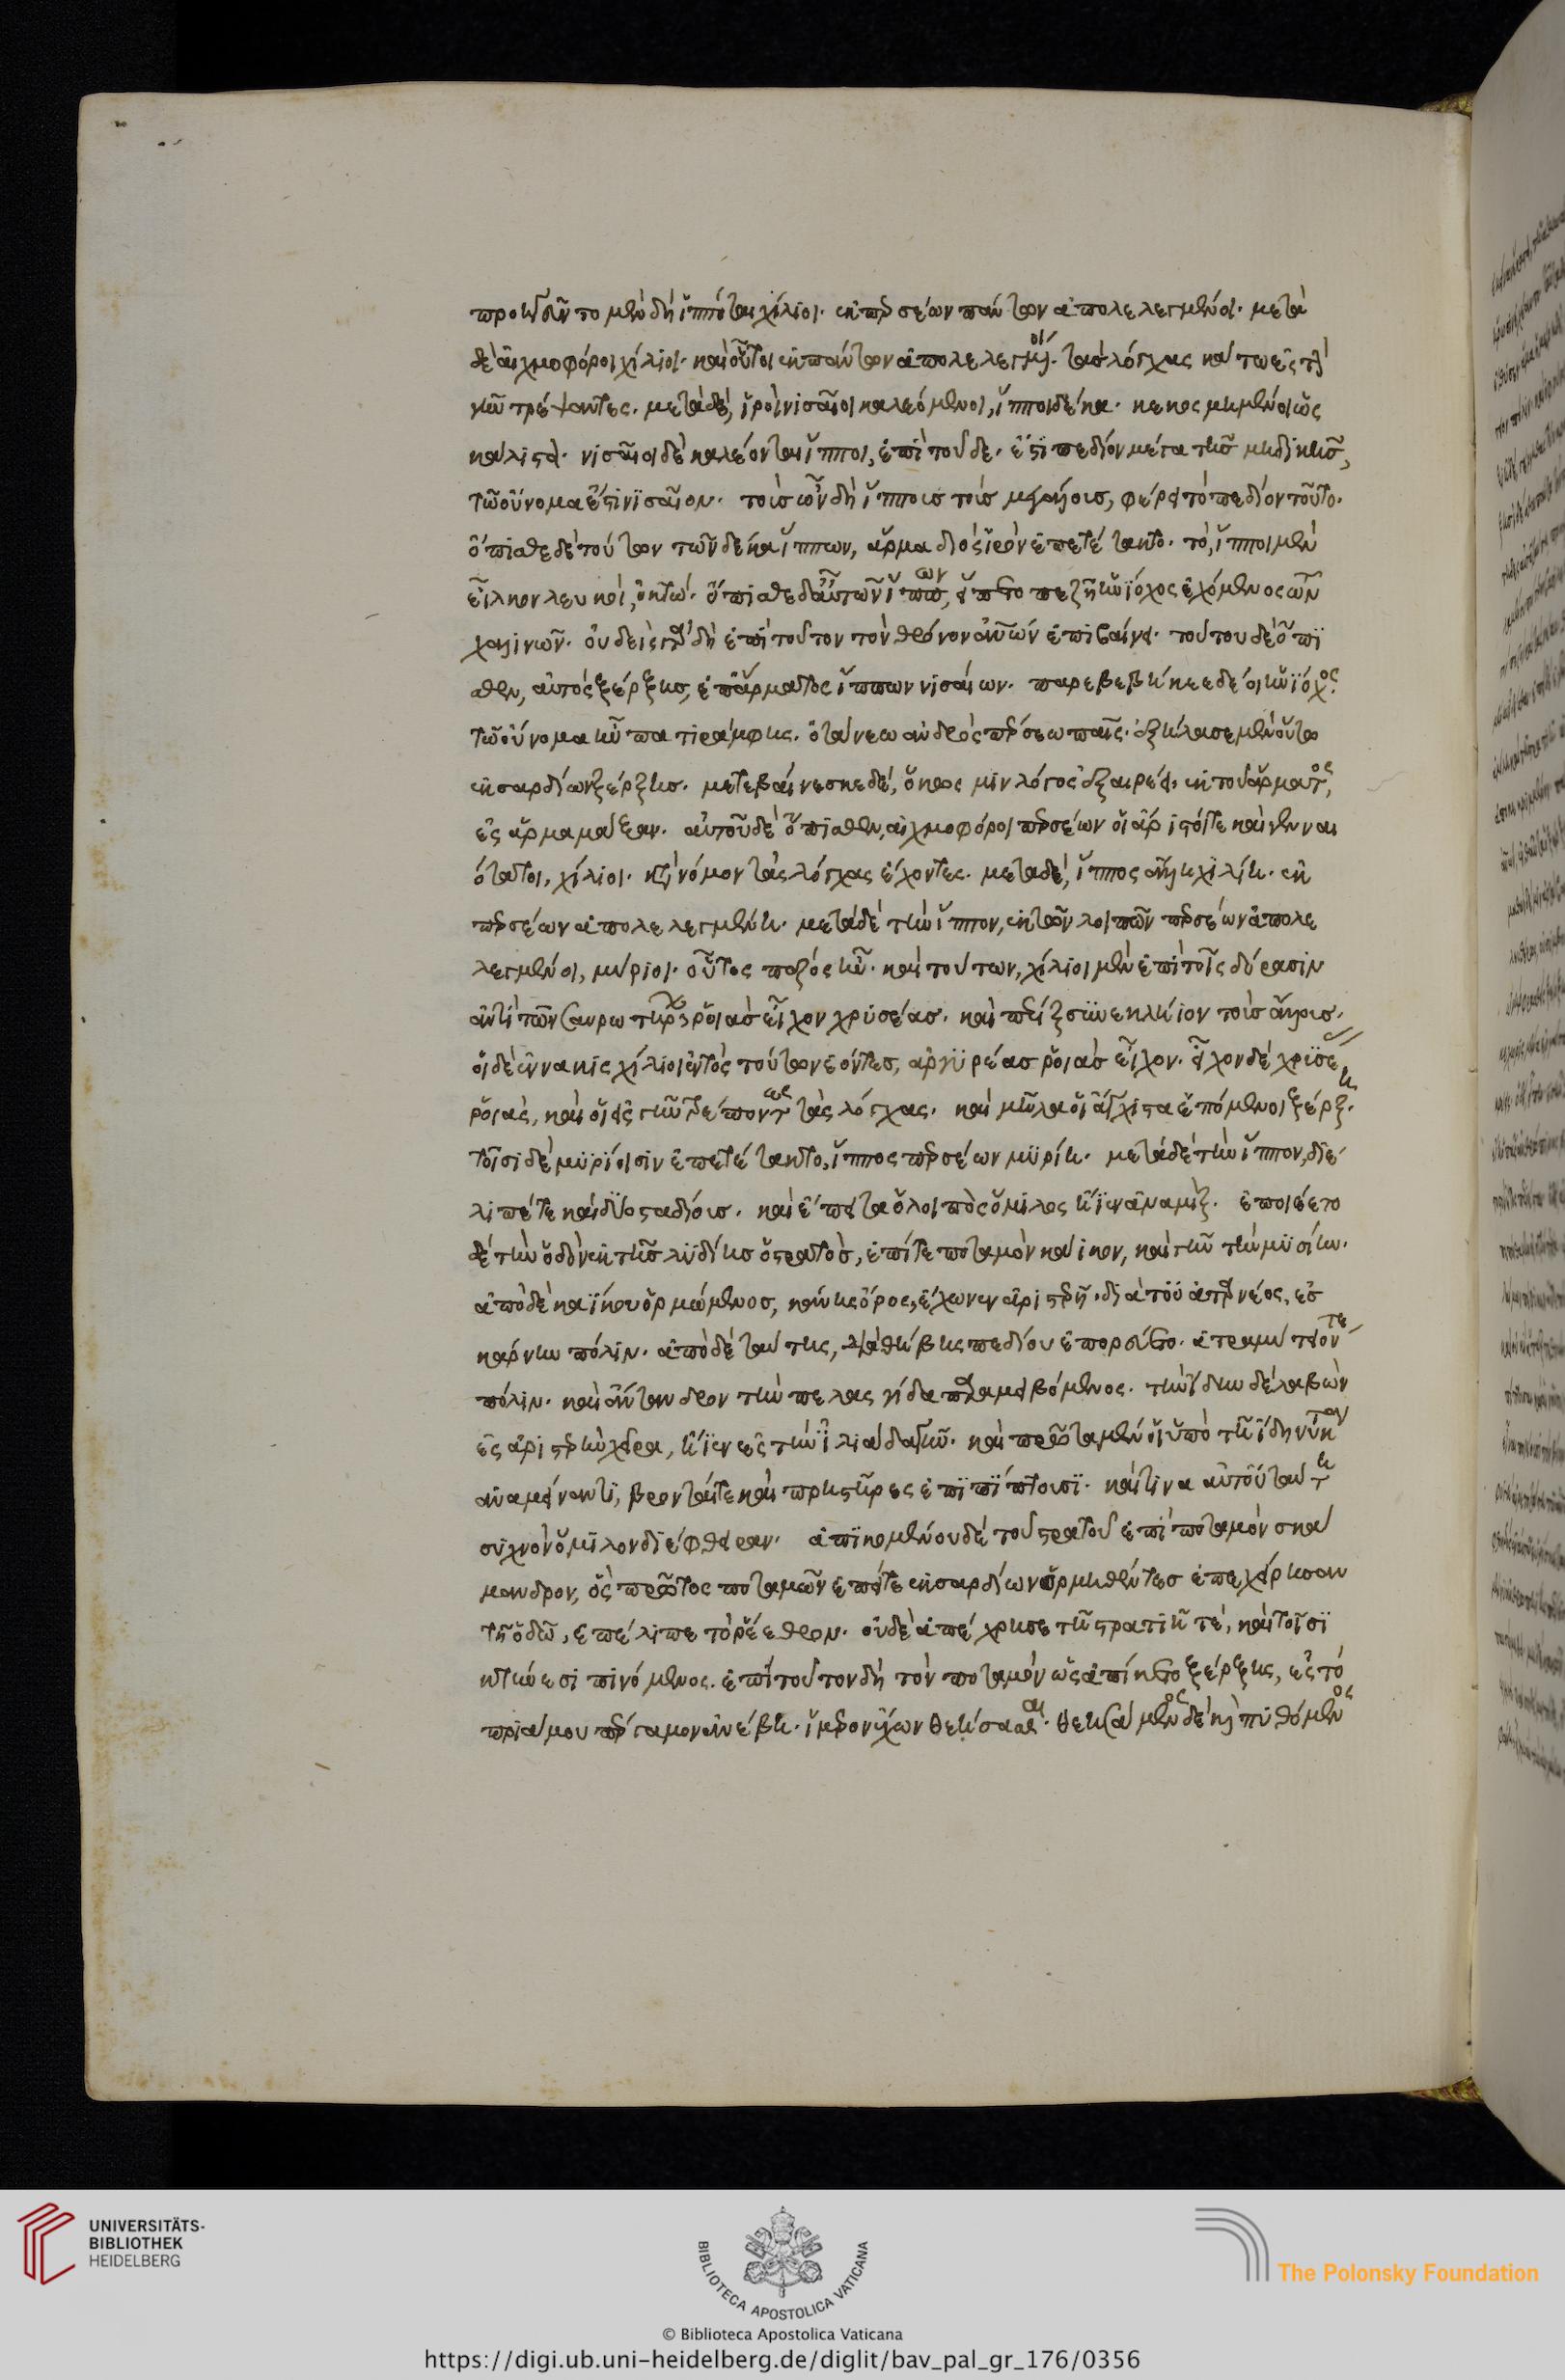 προηγεῦντο μὲν δὴ ἱππόται χίλιοι. ἐκ περσέων πάντων ἀπολελεγμένοι. μετὰ
δὲ αἰχμοφόροι χίλιοι. καὶ οὗτοι ἐκ πάντων ἀπολελεγμένοι. τὰσ λόγχας κάτω ἐς τὴν
γῆν τρέψαντες. μετὰ δὲ, ἱροὶ νισαῖοι καλεόμενοι, ἵπποι δέκα. κεκοσμημένοι ὡς
κάλιστα. νισαῖοι δὲ καλέονται ἵπποι, ἐπὶ τοῦδε. ἔστι πεδίον μέγα τῆσ μηδικῆσ,
τῶ οὔνομα ἐστὶ νισαῖον. τοὺσ ὦν δὴ ἵππουσ τοὺσ μεγάλουσ, φέρει τὸ πεδίον τοῦτο.
ὄπισθε δὲ τούτων τῶν δέκα ἵππων, ἅρμα διὸς ἱρὸν ἐπετέτακτο. τὸ, ἵπποι μὲν
εἷλκον λευκοὶ, ὀκτώ. ὄπισθε δ' αὖ τῶν ἵππων, εἵπετο πεζῆ ἡνίοχος ἐχόμενος τῶν
χαλινῶν. οὐδεὶς γὰρ δὴ ἐπὶ τοῦτον τὸν θρόνον ἀνθρώπων ἐπιβαίνει. τούτου δὲ ὄπι
σθεν, αὐτὸς ξέρξησ, ἐπ' ἅρματος ἵππων νισαίων. παρεβεβήκεε δέ οἱ ἡνίοχος.
τῶ οὔνομα ἦν πατιράμφης. ὀτάνεω ἀνδρὸς πέρσεω παῖς. ἐξήλασε μὲν οὕτω
ἐκ σαρδίων ξέρξησ. μετεβαίνεσκε δὲ, ὅκως μιν λόγος ἐξαιρέει, ἐκ τοῦ ἅρματος,
ἐς ἁρμάμαξαν. αὐτοῦ δὲ ὄπισθεν, αἰχμοφόροι περσέων οἱ ἄριστοί τε καὶ γενναι
ότατοι, χίλιοι. κατὰ νόμον τὰς λόγχας ἔχοντες. μετὰ δὲ, ἵππος ἄλλη χιλίη. ἐκ
περσέων ἀπολελεγμένη. μετὰ δὲ τὴν ἵππον, ἐκ τῶν λοιπῶν περσέων ἀπολε
λεγμένοι, μύριοι. οὗτος πεζός ἦν. καὶ τούτων, χίλιοι μὲν ἐπὶ τοῖς δόρασιν
ἀντὶ τῶν σαυρωτήρων ῥοιὰσ εἶχον χρυσέασ. καὶ πέριξ συνεκλήϊον τοὺσ ἄλλουσ.
οἱ δὲ ἐννακισχίλιοι ἐντὸς τούτων ἐόντεσ, ἀργυρέασ ῥοιὰσ εἶχον. εἶχον δὲ χρυσέ
ῥοιὰς, καὶ οἱ ἐς γῆν τρέποντες τὰς λόγχας. καὶ μῆλα οἱ ἄγχιστα ἑπόμενοι ξέρξη.
τοῖσι δὲ μυρίοισιν ἐπετέτακτο, ἵππος περσέων μυρίη. μετὰ δὲ τὴν ἵππον, διε
λίπετε καὶ δύο σταδίουσ. καὶ ἔπειτα ὁ λοιπὸς ὅμιλος ἤϊεν ἀναμίξ. ἐποιέετο
δὲ τὴν ὁδὸν ἐκ τῆσ λυδίησ ὁ στρατὸσ, ἐπί τε ποταμὸν κάϊκον, καὶ γῆν τὴν μυσίην.
ἀπὸ δὲ καΐκου ὁρμώμενοσ, κάνης ὄρος, ἔχων ἐν ἀριστερῆ. διὰ τοῦ ἀταρνέος, ἐσ
καρήνην πόλιν. ἀπὸ δὲ ταύτης, διὰ θήβης πεδίου ἐπορεύετο. ἀτραμύττειόν τε
πόλιν. καὶ ἄντανδρον τὴν πελασγίδα παραμειβόμενος. τὴν ἴδην δὲ λαβὼν
ἐς ἀριστερὴν χεῖρα, ἤϊεν ἐς τὴν ἰλιάδα γῆν. καὶ πρῶτα μὲν οἱ ὑπὸ τῆ ἴδη νύκτα
ἀναμείναντι, βρονταί τε καὶ πρηστῆρες ἐπιπίπτουσι. καί τινα αὐτοῦ ταύτη
συχνὸν ὅμιλον διέφθειραν. ἀπικομένου δὲ τοῦ στρατοῦ ἐπὶ ποταμὸν σκά
μανδρον, ὃς πρῶτος ποταμῶν ἐπείτε ἐκ σαρδίων ὁρμηθέντεσ ἐπεχείρησαν
τῆ ὁδῶ, ἐπέλιπε τὸ ῥέεθρον. οὐδὲ ἀπέχρησε τῆ στρατιῆ τέ, καὶ τοῖσι
κτήνεσι πινόμενος. ἐπὶ τοῦτον δὴ τὸν ποταμόν ὡς ἀπίκετο ξέρξης, ἐς τὸ
πριάμου πέργαμον ἀνέβη. ἵμερον ἔχων θεήσασθαι. θεησάμενος δὲ καὶ πυθόμενος
UNIVERSITÄTS-
BIBLIOTHEK
HEIDELBERG
BIBLIOTECA APOSTOLICA VATICANA
The Polonsky Foundation
© Biblioteca Apostolica Vaticana
https://digi.ub.uni-heidelberg.de/diglit/bav_pal_gr_176/0356